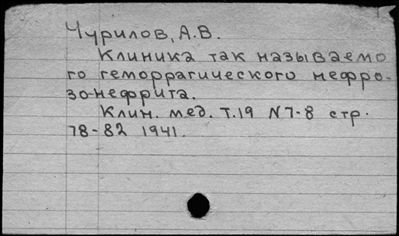 Чурилов, А.В.
Клиника так называемо
го геморрагического нефро-
зо-нефрита.
Клин. мед. Т.19 N7-8 стр.
78-82 1941.